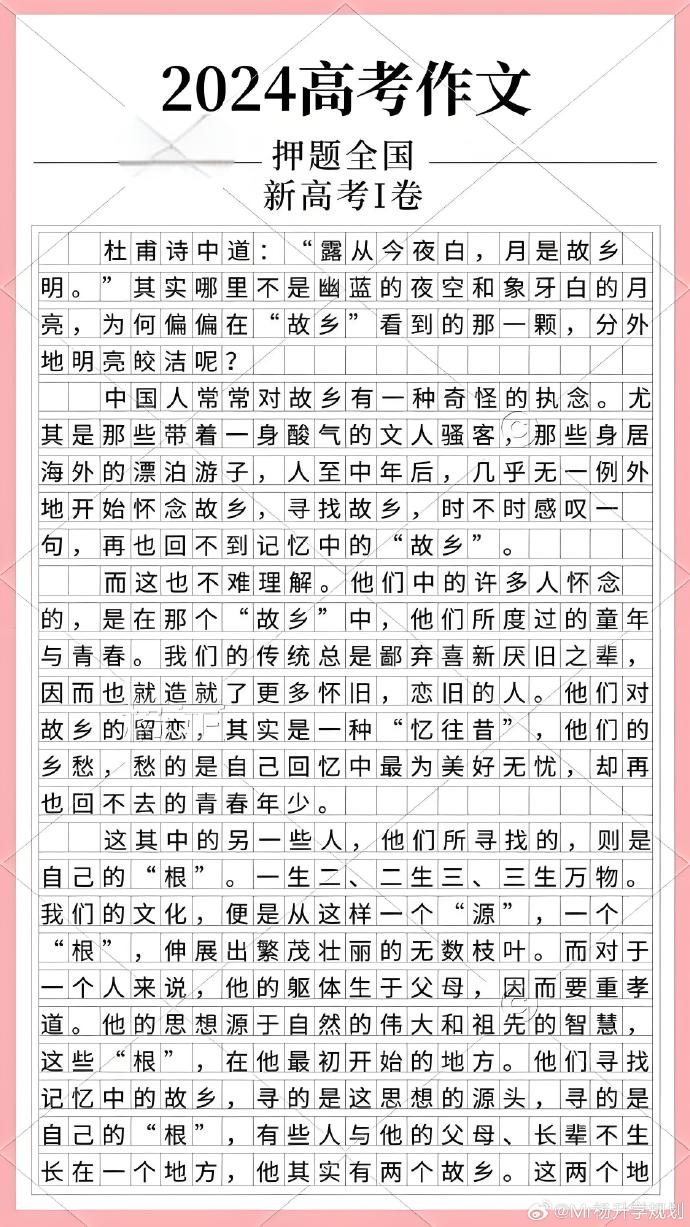 2024高考作文
押题全国
新高考I卷
杜甫诗中道：“露从今夜白，月是故乡
明。”其实哪里不是幽蓝的夜空和象牙白的月
亮，为何偏偏在“故乡”看到的那一颗，分外
地明亮皎洁呢？
中国人常常对故乡有一种奇怪的执念。尤
其是那些带着一身酸气的文人骚客，那些身居
海外的漂泊游子，人至中年后，几乎无一例外
地开始怀念故乡，寻找故乡，时不时感叹一
句，再也回不到记忆中的“故乡”。
而这也不难理解。他们中的许多人怀念
的，是在那个“故乡”中，他们所度过的童年
与青春。我们的传统总是鄙弃喜新厌旧之辈，
因而也就造就了更多怀旧，恋旧的人。他们对
故乡的留恋，其实是一种“忆往昔”，他们的
乡愁，愁的是自己回忆中最为美好无忧，却再
也回不去的青春年少。
这其中的另一些人，他们所寻找的，则是
自己的“根”。一生二、二生三、三生万物。
我们的文化，便是从这样一个“源”，一个
“根”，伸展出繁茂壮丽的无数枝叶。而对于
一个人来说，他的躯体生于父母，因而要重孝
道。他的思想源于自然的伟大和祖先的智慧，
这些“根”，在他最初开始的地方。他们寻找
记忆中的故乡，寻的是这思想的源头，寻的是
自己的“根”，有些人与他的父母、长辈不生
长在一个地方，他其实有两个故乡。这两个地
@Mr杨升学规划